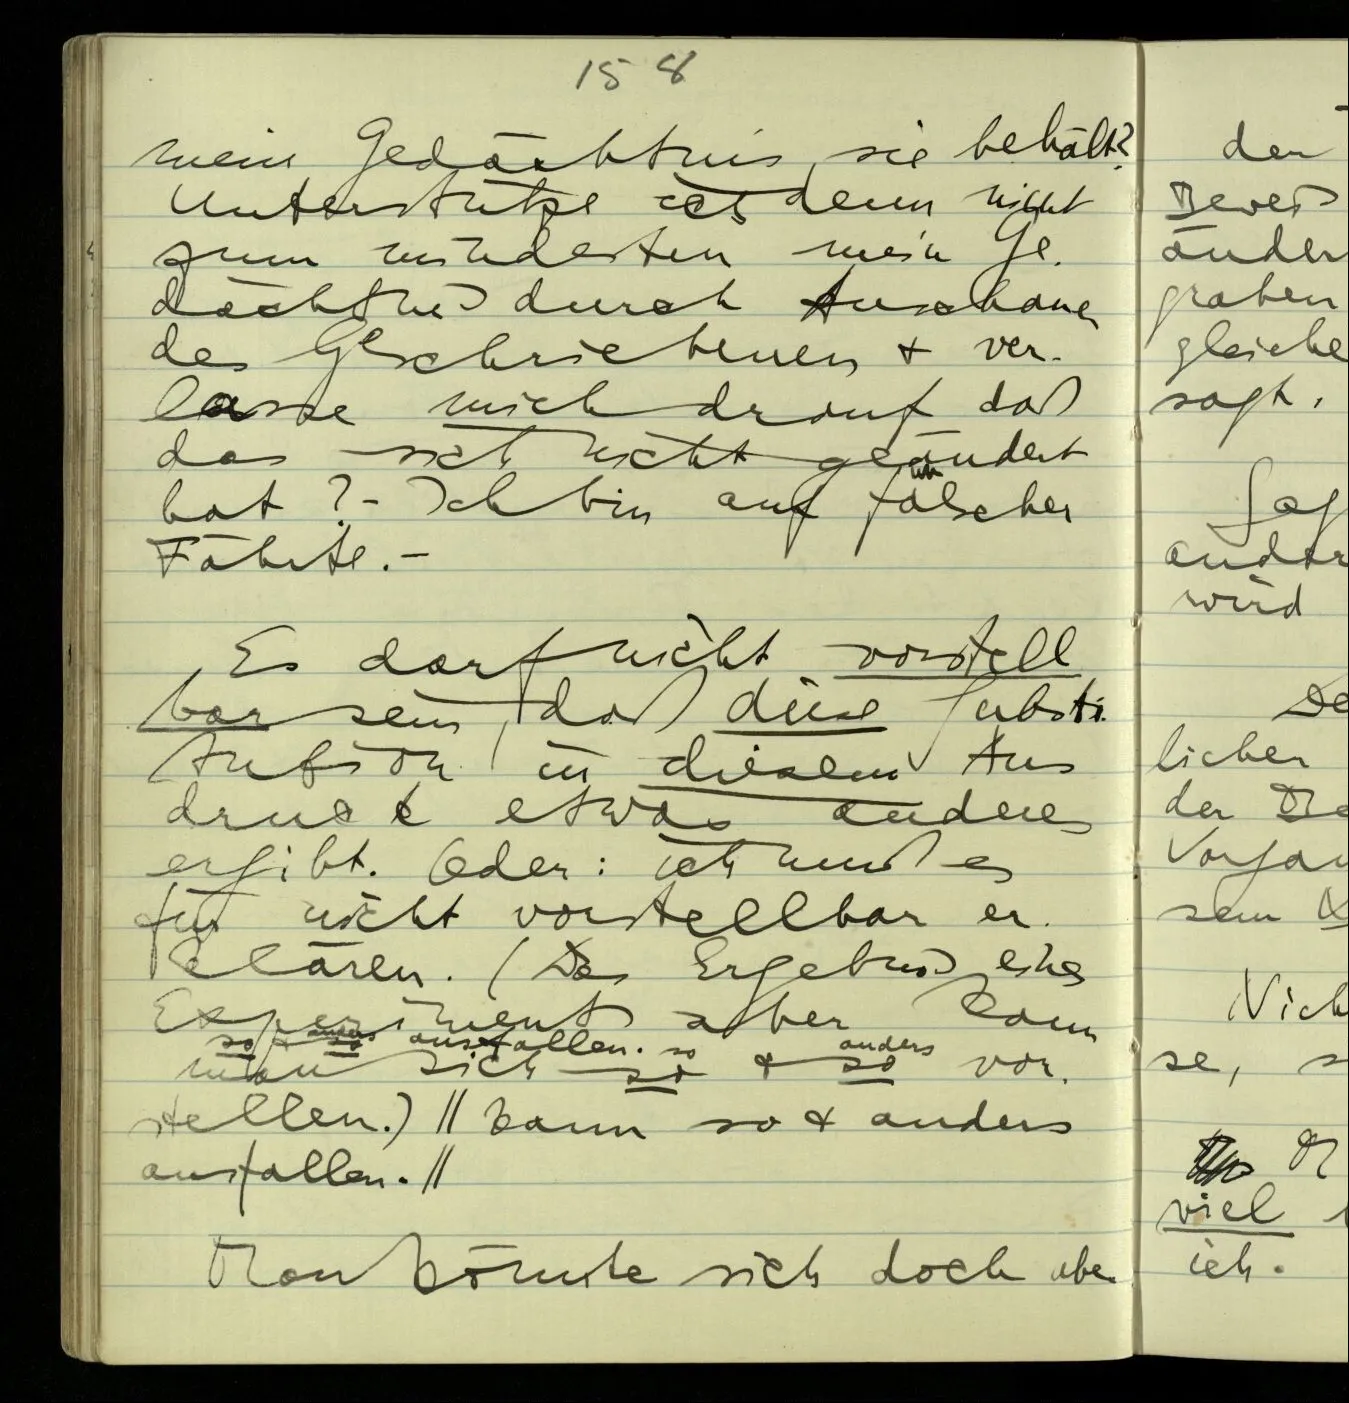 158
mein Gedächtnis sie behält?
Unterstütze ich denn nicht
zum mindesten mein Ge-
dächtnis durch Anschauen
des Geschriebenen + ver-
lasse mich drauf daß
das sich nicht geändert
hat? – Ich bin auf falscher
Fährte. –
Es darf nicht vorstell
bar sein, daß diese Substi-
tution in diesem Aus
druck etwas anderes
ergibt. Oder: ich muß es
für nicht vorstellbar er-
klären. (Das Ergebnis eines
Experiments aber kann
so + anders ausfallen. so anders
man sich so + so vor-
stellen.) || kann so + anders
ausfallen. ||
Man könnte sich doch aber
der
Bewei
änder
graben
gleiche
sagt.
Sag
ander
wird
De
licher
der Be
Vorgan
sem
Nich
se, s
viel
ich.